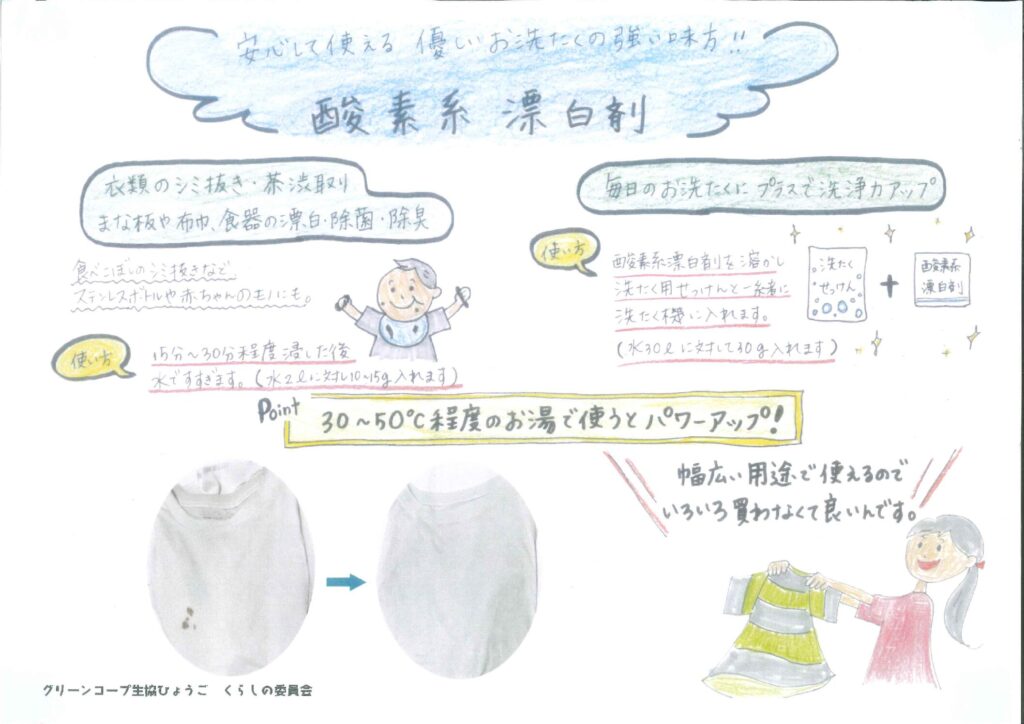 安心して使える 優しいお洗たくの強い味方!!
酸素系 漂白剤
衣類のシミ抜き・茶渋取り
まな板や布巾、食器の漂白・除菌・除臭
食べこぼしのシミ抜きなど
ステンレスボトルや赤ちゃんのモノにも。
使い方
15分〜30分程度浸した後
水ですすぎます。(水2ℓに対し10〜15g入れます)
毎日のお洗たくにプラスで洗浄力アップ
使い方
酸素系漂白剤を溶かし
洗たく用せっけんと一緒に
洗たく機に入れます。
(水30ℓに対して30g入れます)
洗たく
せっけん
+
酸素系
漂白剤
Point
30〜50℃程度のお湯で使うとパワーアップ!
幅広い用途で使えるので
いろいろ買わなくて良いんです。
グリーンコープ生協ひょうご くらしの委員会